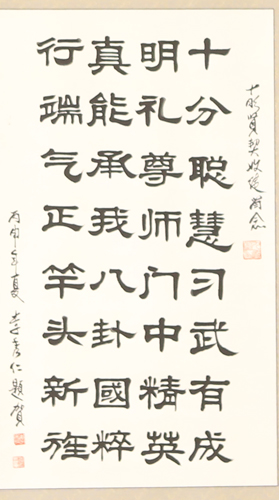 十明賢契收徒留念
十分聪慧习武有成
明礼尊师门中精英
真能承我八卦國粹
行端气正竿头新旌
丙申年夏 李秀仁題賀